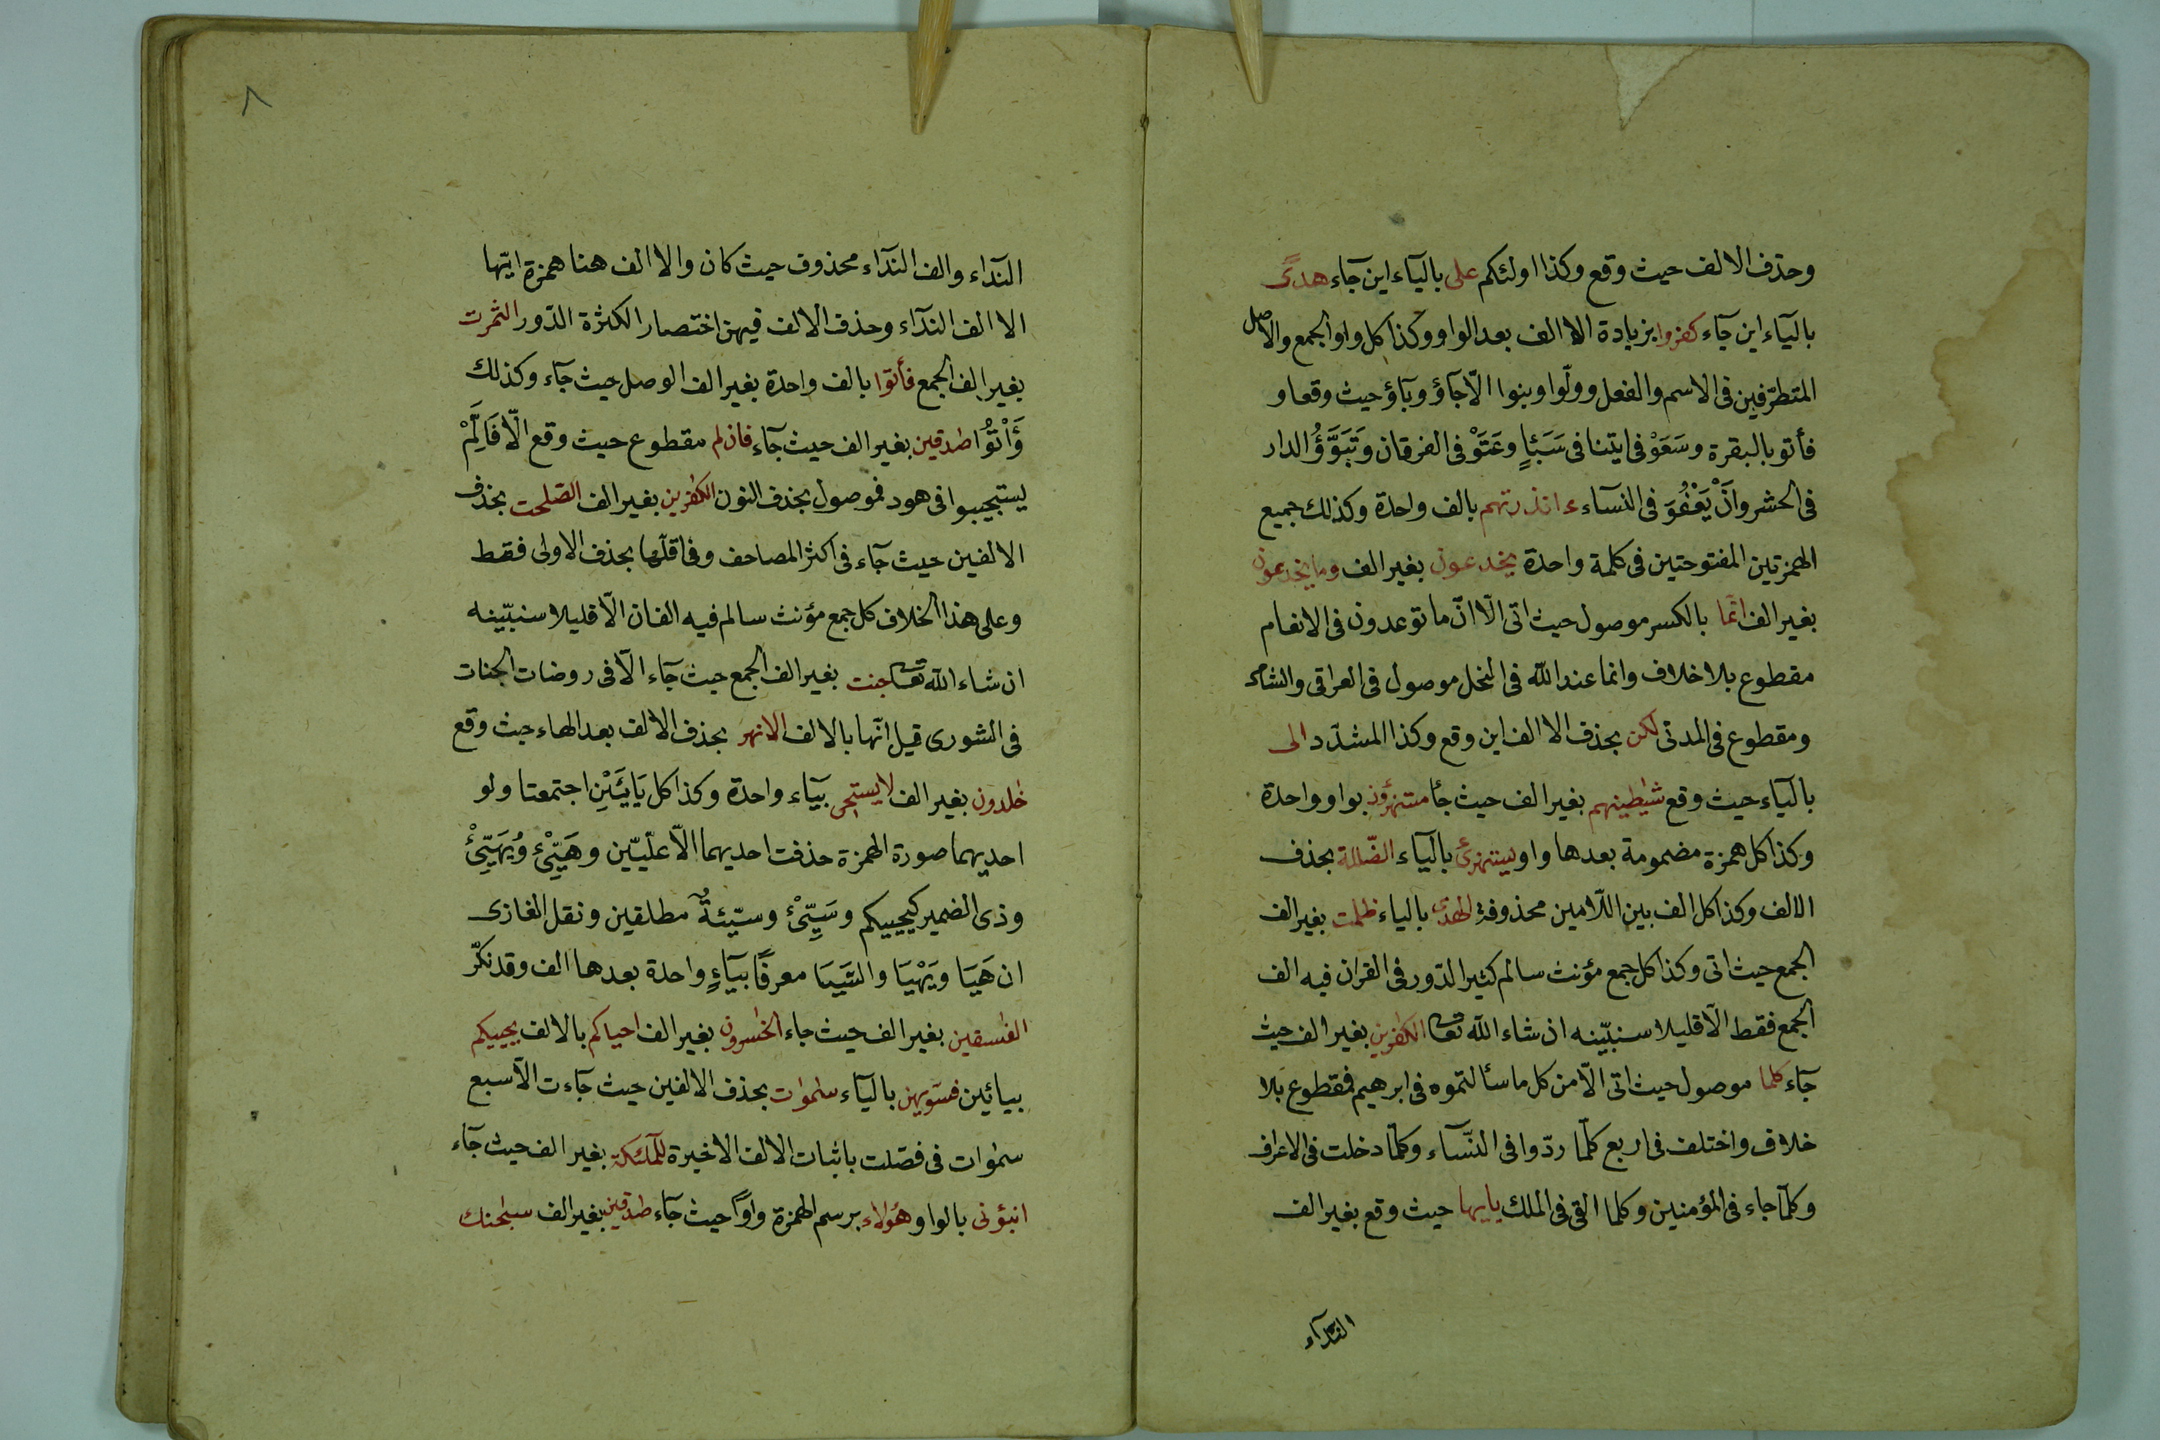 وحذف الالف حيث وقع وكذا اولئكم على بالياء اين جآء هدى
بالياء اين جآء كفروا بزيادة الاالف بعد الواو وكذا كل واو الجمع والاصل
المتطرّفين فى الاسم والفعل وولّوا وبنوا الّا جاؤ وبآؤ حيث وقعا و
فأتو بالبقرة وسَعَوْ فى ايتنا فى سَبَإٍ وعَتَوْ فى الفرقان وَتَبَوَّؤُ الدار
فى الحشر وانْ يَعْفُوَ فى النسآء ءانذرتهم بالف واحدة وكذلك جميع
الهمزتين المفتوحتين فى كلمة واحدة يخدعون بغير الف وما يخدعون
بغير الف انّما بالكسر موصول حيث اتى الّا انّ ما توعدون فى الانعام
مقطوع بلا خلاف وانما عند اللّه فى النحل موصول فى العراقى والشامى
ومقطوع فى المدنى لكن بحذف الاالف اين وقع وكذا المشدّد الى
بالياء حيث وقع شيٰطينهم بغير الف حيث جآ مستهزؤن بواو واحدة
وكذا كل همزة مضمومة بعدها واو يستهزئ بالياء الضّللة بحذف
الالف وكذا كل الف بين اللّامين محذوفة الهدى بالياء ظلمت بغير الف
الجمع حيث اتى وكذا كل جمع مؤنث سالم كثير الدّور فى القران فيه الف
الجمع فقط الّا قليلا سنبيّنه ان شاء اللّه تعا الكٰفرين بغير الف حيث
جآء كلما موصول حيث اتى الّا من كل ما سألتموه فى ابرهيم فمقطوع بلا
خلاف واختلف فى اربع كلّما ردّوا فى النّسآء وكلّما دخلت فى الاعراف
وكلّما جاء فى المؤمنين وكلما القى فى الملك يايها حيث وقع بغير الف
الندآء
٨
الندآء والف الندآء محذوف حيث كان والاالف هنا همزة ايّها
الاالف الندآء وحذف الالف فيهن اختصارا لكثرة الدّور الثمرت
بغير الف الجمع فأتوا بالف واحدة بغير الف الوصل حيث جآء وكذلك
وَأْتُوا صٰدقين بغير الف حيث جآء فان لم مقطوع حيث وقع الّا فَاِلَّمْ
يستجيبوا فى هود فموصول بحذف النون الكٰفرين بغير الف الصّلحت بحذف
الالفين حيث جآء فى اكثر المصاحف وفى اقلّها بحذف الاولى فقط
وعلى هذا الخلاف كل جمع مؤنث سالم فيه الفان الّا قليلا سنبيّنه
ان شاء اللّه تعا جنت بغير الف الجمع حيث جآء الّا فى روضات الجنات
فى الشورى قيل انّها بالالف الانهر بحذف الالف بعد الهاء حيث وقع
خٰلدون بغير الف لا يستحى بيآء واحدة وكذا كل يَايَيْنِ اجتمعتا ولو
احديهما صورة الهمزة حذفت احديهما الّا علّيّين وهَيِّئْ ويُهَيِّئْ
وذى الضمير كيحييكم وسَيِّئْ وسيّئةٌ مطلقين ونقل الغازى
ان هَيَا ويَهْيَا والسَيَا معرفًا بيآءٍ واحدة بعدها الف وقد نكّر
الفٰسقين بغير الف حيث جاء الخٰسرون بغير الف احياكم بالالف يحييكم
بيائين فسوّيهن باليآء سمٰوات بحذف الالفين حيث جآءت الّا سبع
سمٰوات فى فصّلت باثبات الالف الاخيرة للملٰئكة بغير الف حيث جآء
انبؤنى بالواو وهٰؤلاء برسم الهمزة واوًا حيث جآء صٰدقين بغير الف سبٰحنك